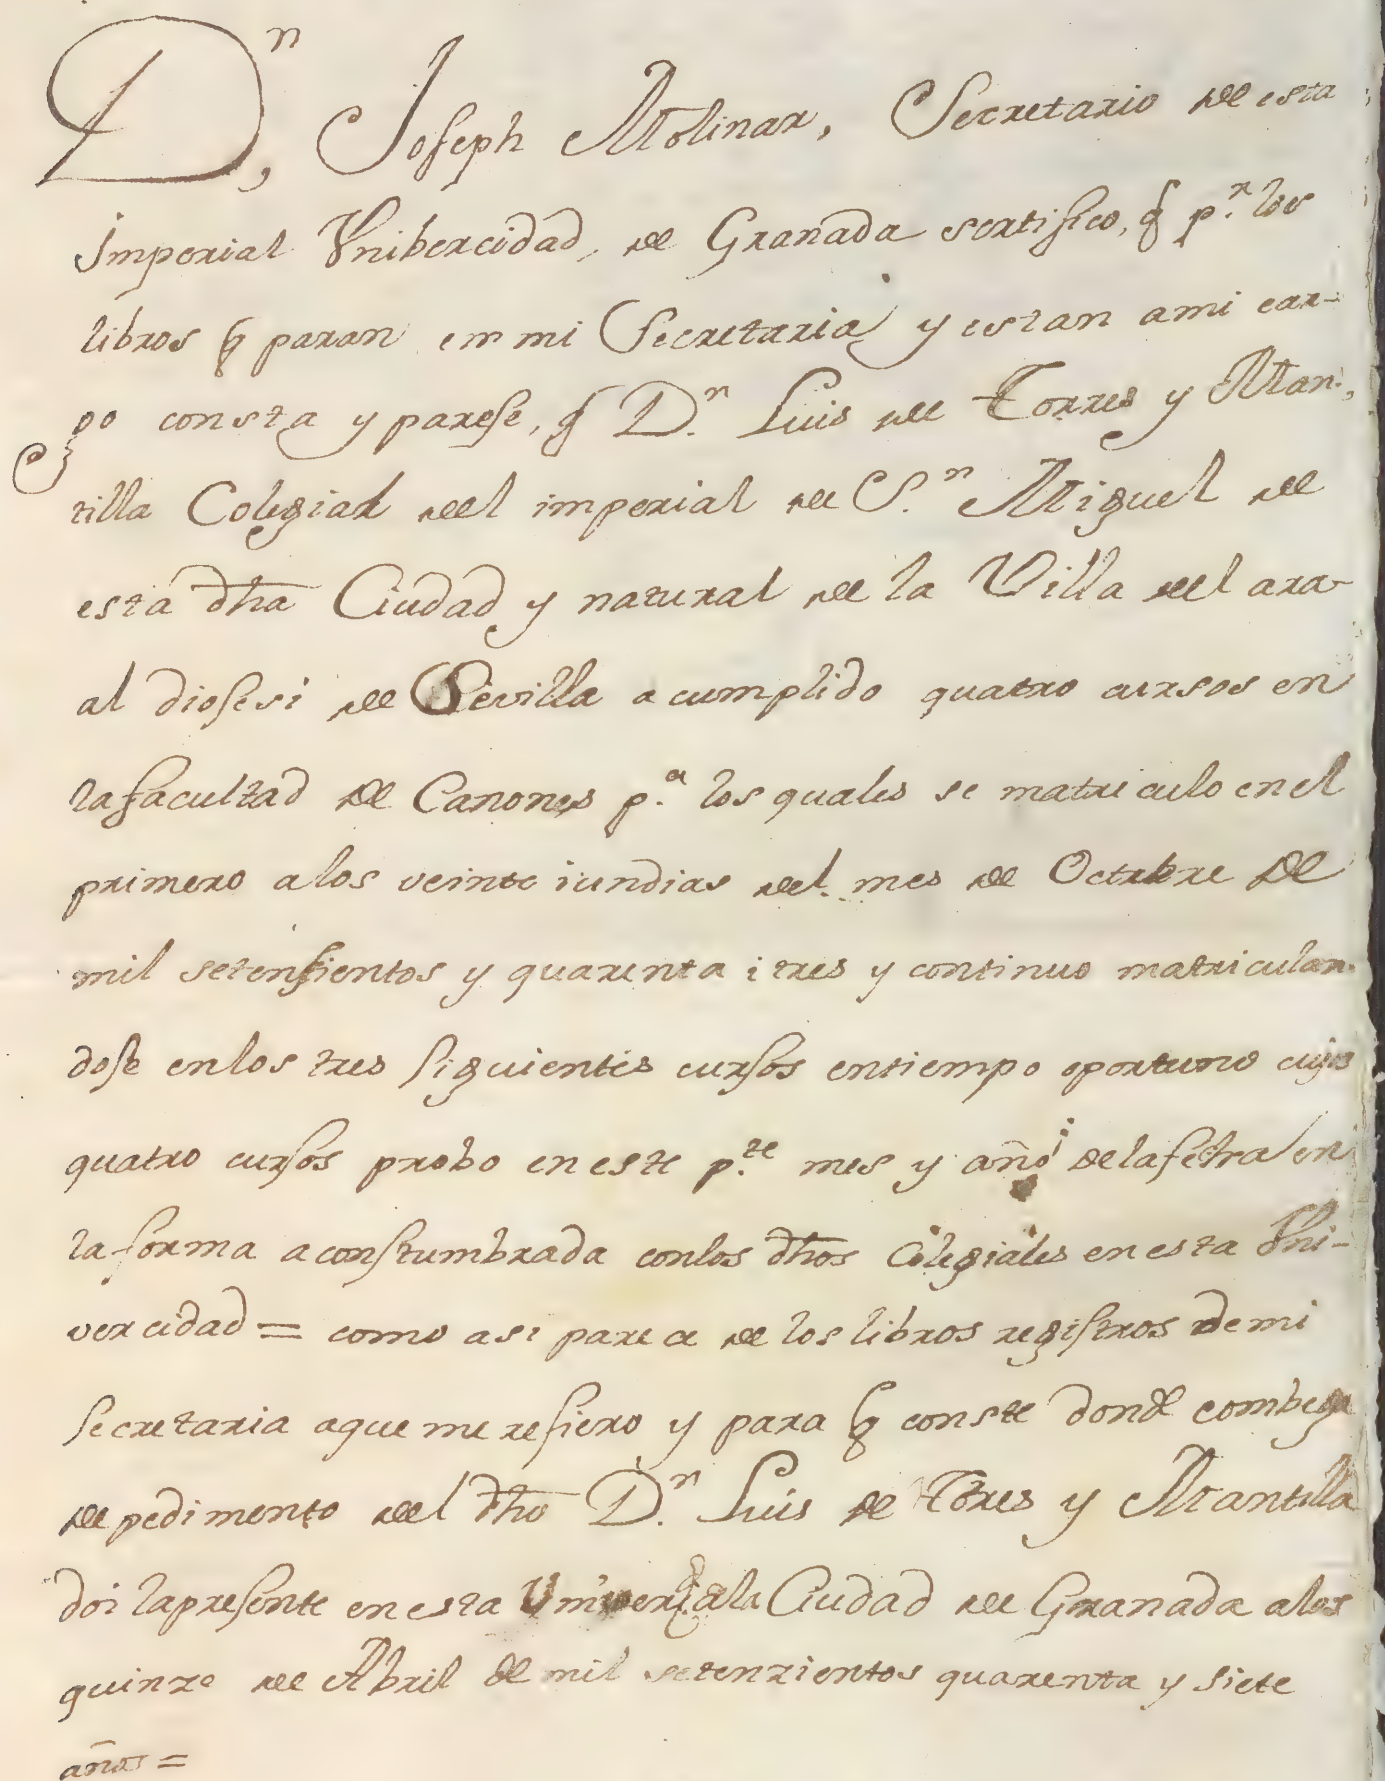 Dn, Joseph Molinar, Secretario de esta
Imperial Vnibercidad, de Granada sertifico, q pr los
libros q paran em mi Secretaria y estan ami car-
go consta y parese, q Dn. Luis de Torres y Man-
tilla Colegial del imperial de Sn. Miguel de
esta dha Ciudad y natural de la Villa del ara-
al diosesi de Sevilla a cumplido quatro cursos en
la facultad de Canones pa. los quales se matriculo en el
primero alos veinte iundias del mes de Octubre de
mil setensientos y quarenta i tres y continuo matriculan-
dose enlos tres siguientes cursos entiempo oportuno cujos
quatro cursos probo en este pte. mes y año de la fetra en
la forma aconstumbrada conlos dhos Colegiales en esta Vni-
vercidad = como asi parece de los libros registros de mi
secretaria aque me refiero y para q conste donde combega
de pedimento del dho Dn. Luis de Tores y Mantilla
doi la presente en esta Ciudad de Granada alos
quinze de Abril de mil setenzientos quarenta y siete
años =